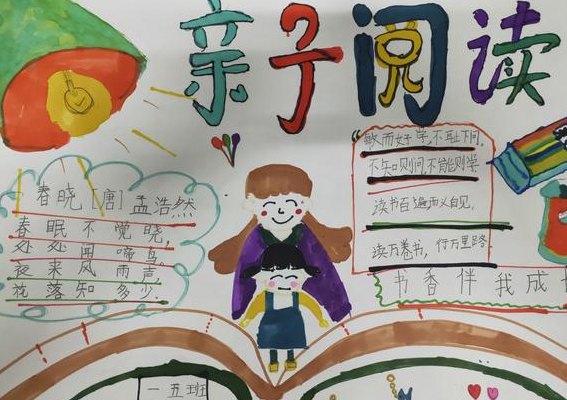 亲子阅读
春晓[唐]孟浩然
春眠不觉晓,
处处闻啼鸟,
夜来风雨声,
花落知多少.
敏而好学,不耻下问.
不知则问,不能则学
读书百遍而义自见,
读万卷书,行万里路.
书香伴我成
一五班